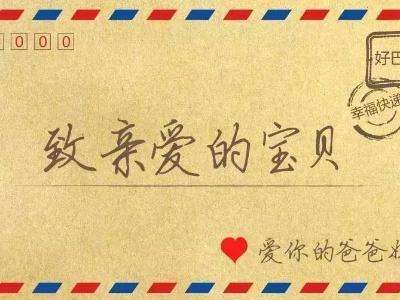 0000
好
幸福快递
致亲爱的宝贝
爱你的爸爸